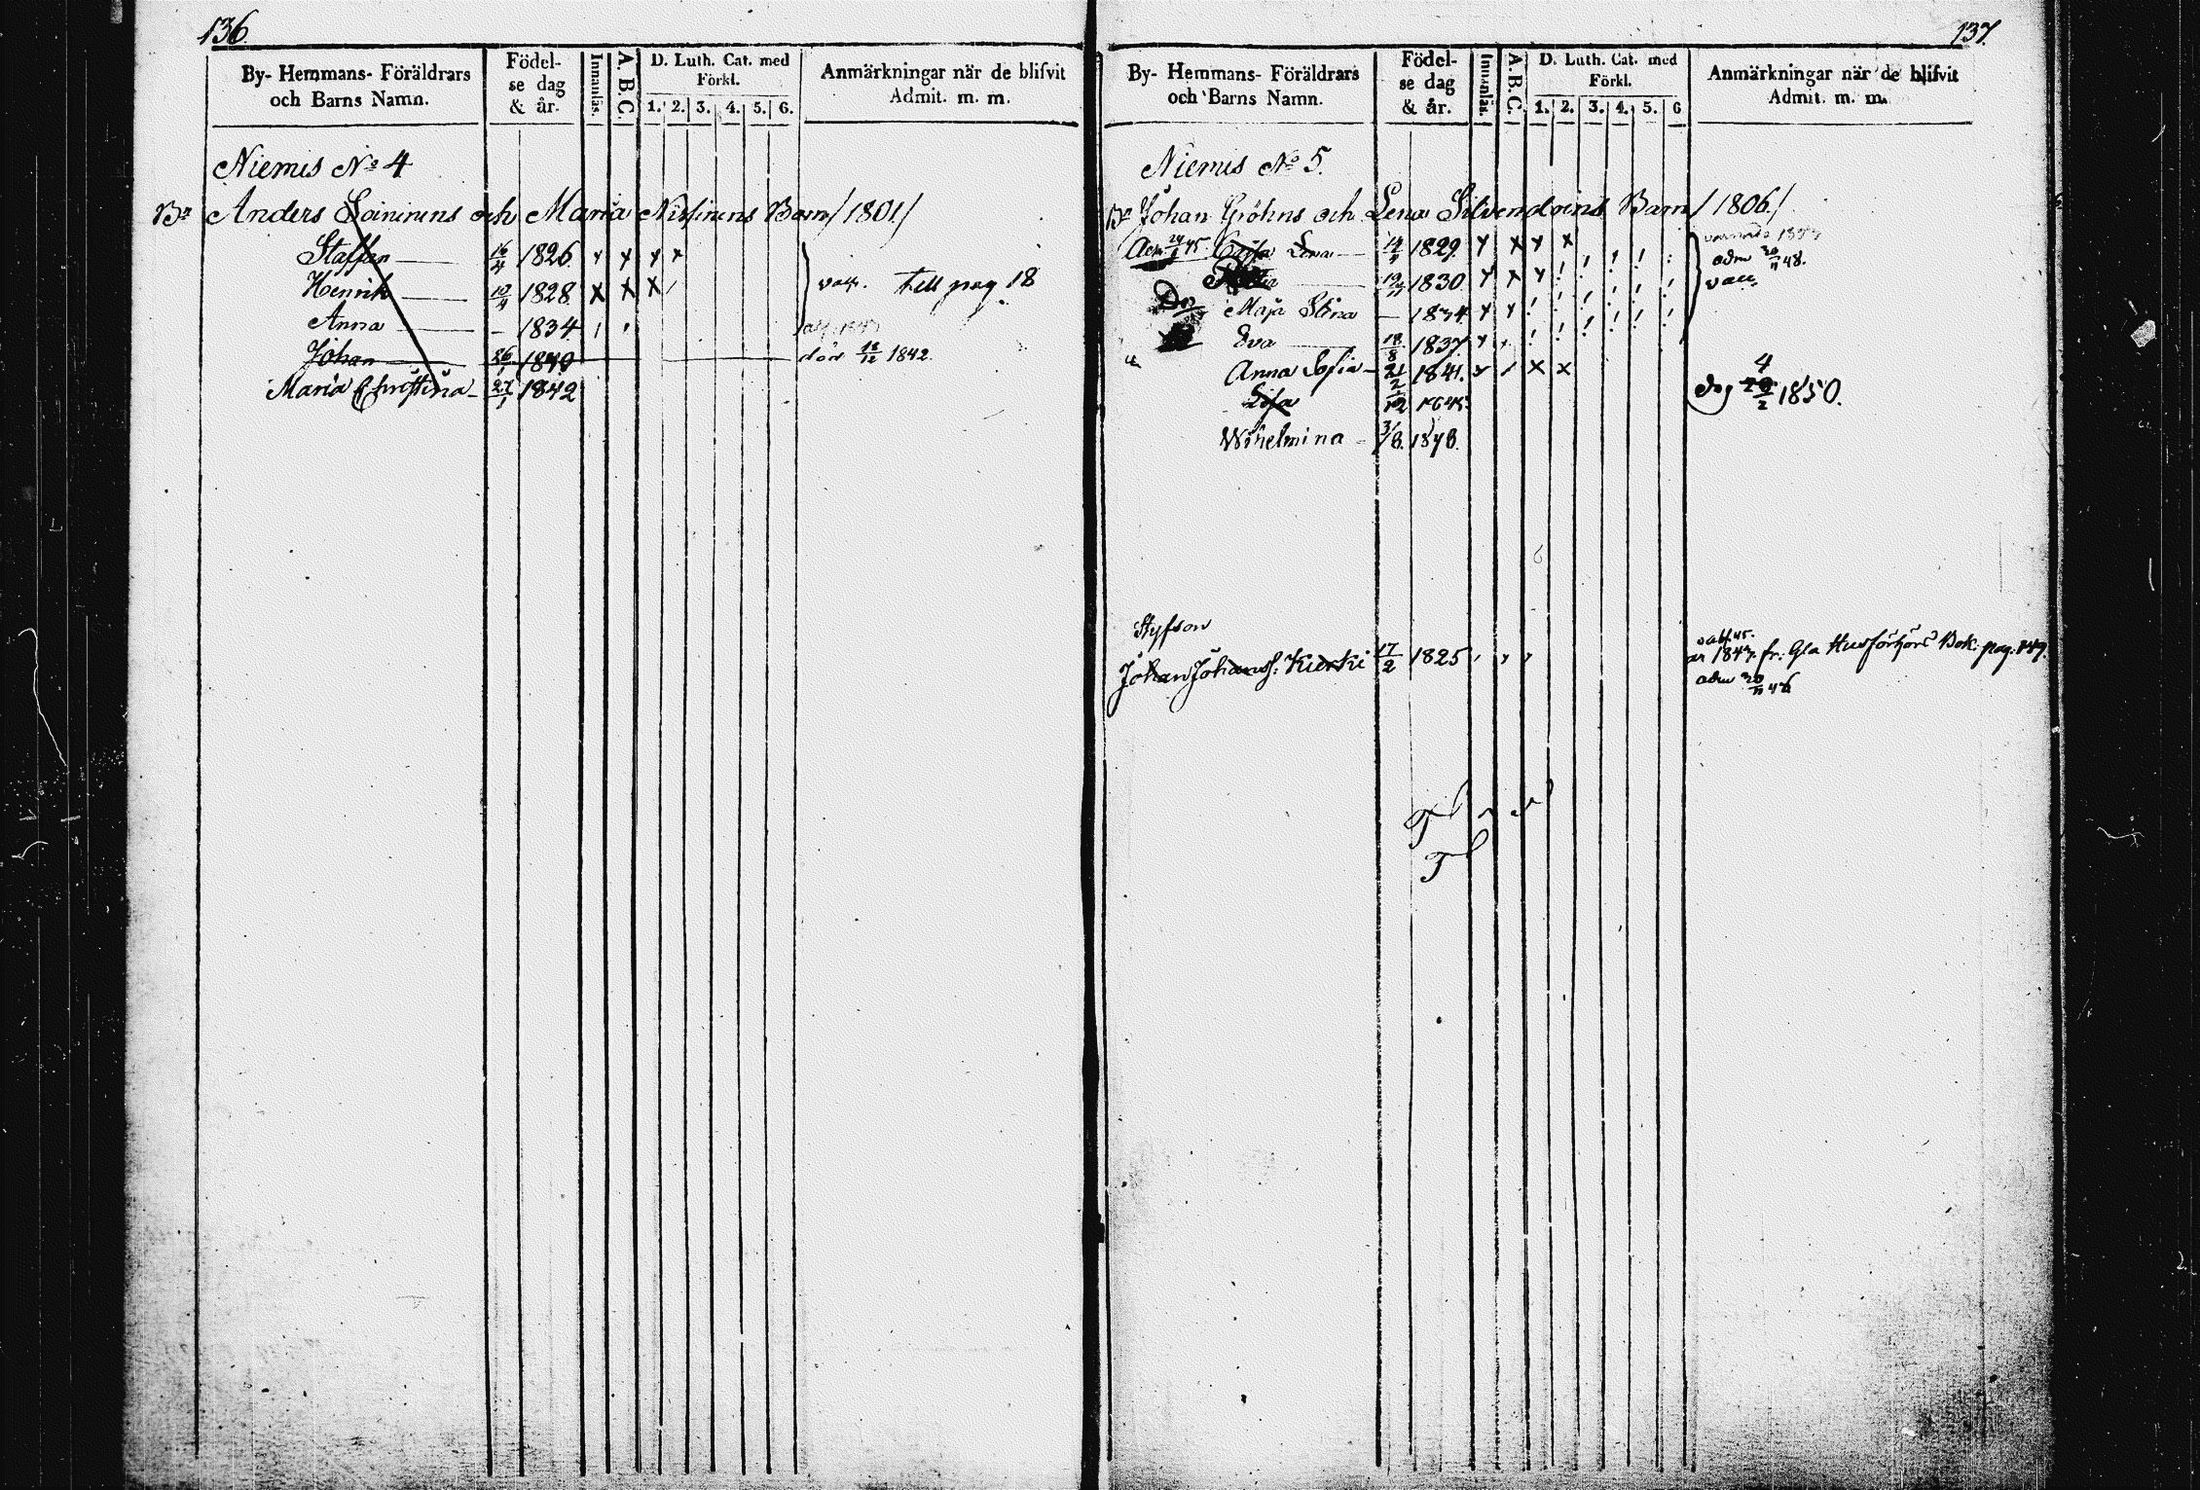 136
By- Hemmans- Föräldrars och Barns Namn.
Födel- se dag & år.
Innanläs.
A. B. C.
D. Luth. Cat. med Förkl.
1. 2. 3. 4. 5. 6.
Anmärkningar när de blifvit Admit. m. m.
Niemis No 4
Anders Soininens och Maria Nissinens Barn /1801/
Staffan 16/4 1826
Henrik 1828 till pag 18
Anna 1834
Johan 26/1 1840 död 18/12 1842.
Maria Christina 27/1 1842
137.
By- Hemmans- Föräldrars och Barns Namn.
Födel- se dag & år.
Innanläs.
A. B. C.
D. Luth. Cat. med Förkl.
1. 2. 3. 4. 5. 6
Anmärkningar när de blifvit Admit. m. m.
Niemis No 5.
Johan Gröhns och Lena Silvendoins Barn /1806./
Lena 1829.
adm 48.
1830 vacc
Maja Stina 1834
Eva 18/8 1837
Anna Sofia 1841.
Lisa
4/2 1850.
Wilhelmina 31/8. 1848.
Styfson
Johan Johanss: Kierki 17/2 1825
fr. Gla Husförhörs Bok. pag. 149.
adm